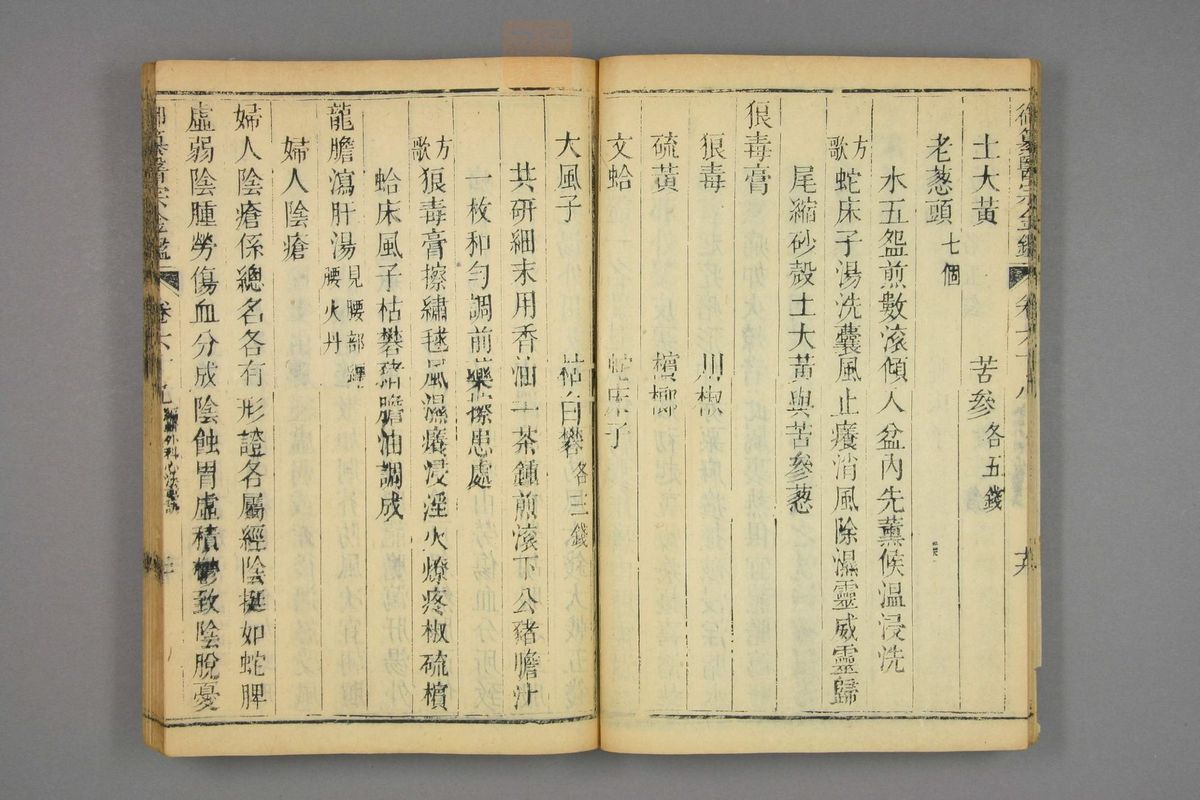 御纂醫宗金鑑 卷六十八
土大黃 苦參各五錢
老葱頭七個
水五盌煎數滾傾入盆內先薰候溫浸洗
方歌 蛇床子湯洗囊風止癢消風除濕靈威靈歸
尾縮砂殼土大黃與苦參葱
狼毒膏
狼毒 川椒
硫黃 檳榔
文蛤 蛇床子
大風子 枯白礬各三錢
共研細末用香油一茶鍾煎滾下公豬膽汁
一枚和勻調前藥擦患處
方歌 狼毒膏擦繡毬風濕癢浸淫火燎疼椒硫檳
蛤床風子枯礬豬膽油調成
龍膽瀉肝湯見腰部纏腰火丹
婦人陰瘡
婦人陰瘡係總名各有形證各屬經陰挺如蛇脾
虛弱陰腫勞傷血分成陰蝕胃虛積鬱致陰脫憂
御纂醫宗金鑑 卷六十九 外科心法